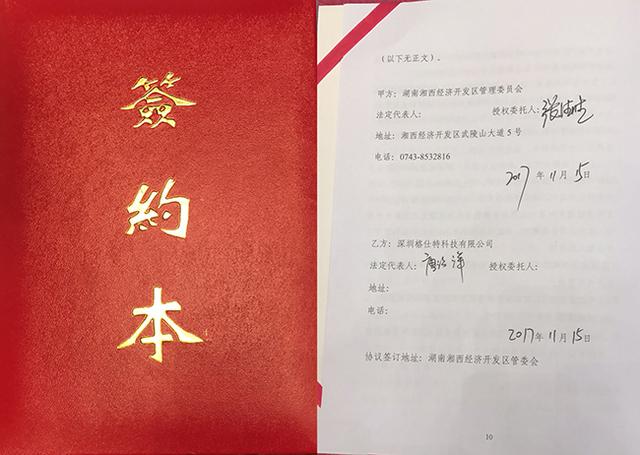 簽
約
本
（以下无正文）。
甲方：湖南湘西经济开发区管理委员会
法定代表人： 授权委托人：
地址：湘西经济开发区武陵山大道 5 号
电话：0743-8532816
2017 年 11 月 15 日
乙方：深圳格仕特科技有限公司
法定代表人： 授权委托人：
地址：
电话：
2017 年 11 月 15 日
协议签订地址：湖南湘西经济开发区管委会
10